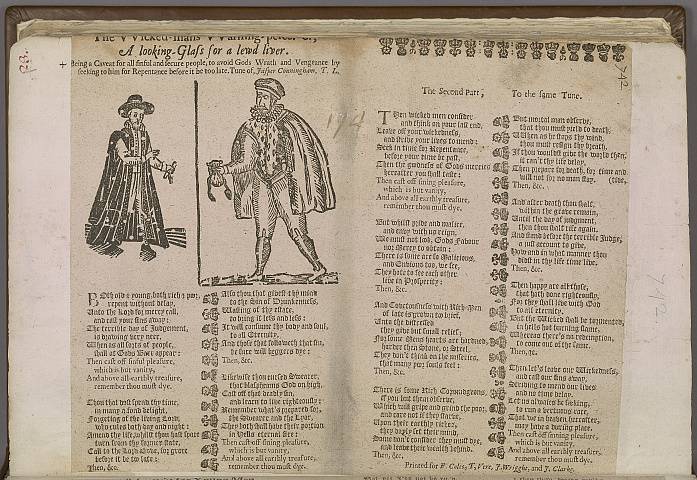 The Wicked-mans Warning-peice: Or,
A looking-Glass for a lewd liver.
Being a Caveat for all sinful and secure people, to avoid Gods Wrath and Vengeance by
seeking to him for Repentance before it be too late. Tune of, Jasper Conningham, T. L.
BOth old & young, both rich & poor,
repent without delay,
Unto the Lord for mercy call,
and call your sins away:
The terrible day of Judgement,
is drawing very neer,
When as all sorts of people,
shall at Gods Bar appear:
Then cast off sinful pleasure,
which is but vanity,
And above all earthly treasure,
remember thou must dye.
Thou that dost spend thy time,
in many a fond delight,
Forgetting of the living Lord,
who rules both day and night:
Amend thy life, whilst thou hast space
Call to the Lord above, for grace
before it be to late:
Then, &c.
Also thou that givest thy mind
to the Sin of Drunkenness,
Wasting of thy estate,
to bring it less and less:
It will consume thy body and soul,
to all Eternity,
And those that followeth that sin,
be sure will beggers dye:
Then, &c.
Likewise thou cursed Swearer,
that blasphems God on high,
Call off that deadly sin,
and learn to live righteously:
Remember what's prepared for,
the Swearer and the Lyar,
They both shall have their portion
in Hells eternal fire:
Then cast off sinning pleasure,
which is but vanity,
And above all earthly treasure,
remember thou must dye.
The Second Part, To the same Tune.
THen wicked men consider
and think on your last end,
Leave off your wickedness,
and strive your lives to mend:
Seek in time for Repentance,
before your time be past,
Then the goodness of Gods mercies
hereafter you shall taste:
Then cast off sinning pleasure,
which is but vanity,
And above all earthly treasure,
remember thou must dye.
But whilst pride and malice,
and envy doth so reign,
We must not look Gods Favour
nor Mercy to obtain:
There is some are so Malicious,
and Envious too, we see,
They hate to see each other
live in Prosperity:
Then, &c.
And Covetousness with Rich-Men
of late is grown so brief,
Unto the distressed
they give but small relief;
For some Mens hearts are hardned,
harder then Stone, or Steel,
They don't think on the miseries,
that many poor souls feel:
Then, &c.
There is some Rich Cormudgeons,
if you but them observe,
Which will gripe and grind the poor,
and care not if they starve,
Upon their earthly riches,
they dayly set their mind,
Some don't consider they must dye,
and leave their wealth behind.
Then, &c.
But mortal man observe,
that thou must yeild to death,
When as he stops thy wind,
thou must resign thy breath,
If thou wouldst give the world then,
it can't thy life delay,
Then prepare for death, for time and
will not for no man stay. (tide,
Then, &c.
And after death thou shalt,
within the grave remain,
Until the day of Judgment,
then thou shalt rise again.
And stand before the terrible Judge,
a just account to give,
How and in what manner thou
didst in thy life time live.
Then, &c.
Then happy are all those,
that hath done righteously,
For they shall live with God
to all eternity.
But the Wicked shall be tormented,
in hells hot burning flame,
Whereas there's no redemption,
to come out of the same.
Then, &c.
Then let's leave our Wickedness,
and cast our sins away,
Striving to mend our lives
and no time delay,
Let us alwaies be seeking,
to run a vertuous race,
That we in heaven hereafter,
may have a during place
Then cast off sinning pleasure,
which is but vanity,
And above all earthly treasure,
remember thou must dye.
Printed for F. Coles, T, Vere, J. Wright, and J. Clarke.
742
174